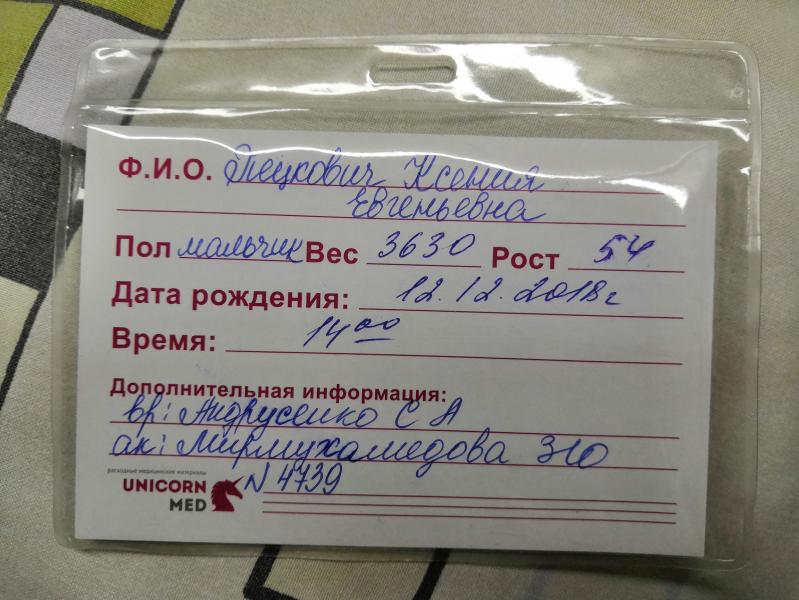 Ф.И.О. Пецкович Ксения
Евгеньевна
Пол мальчик Вес 3630 Рост 54
Дата рождения: 12.12.2018г
Время: 14 00
Дополнительная информация:
вр: Андрусенко С А
ак: Мирмухамедова ЗЮ
расходные медицинские материалы
UNICORN
MED
N 4739